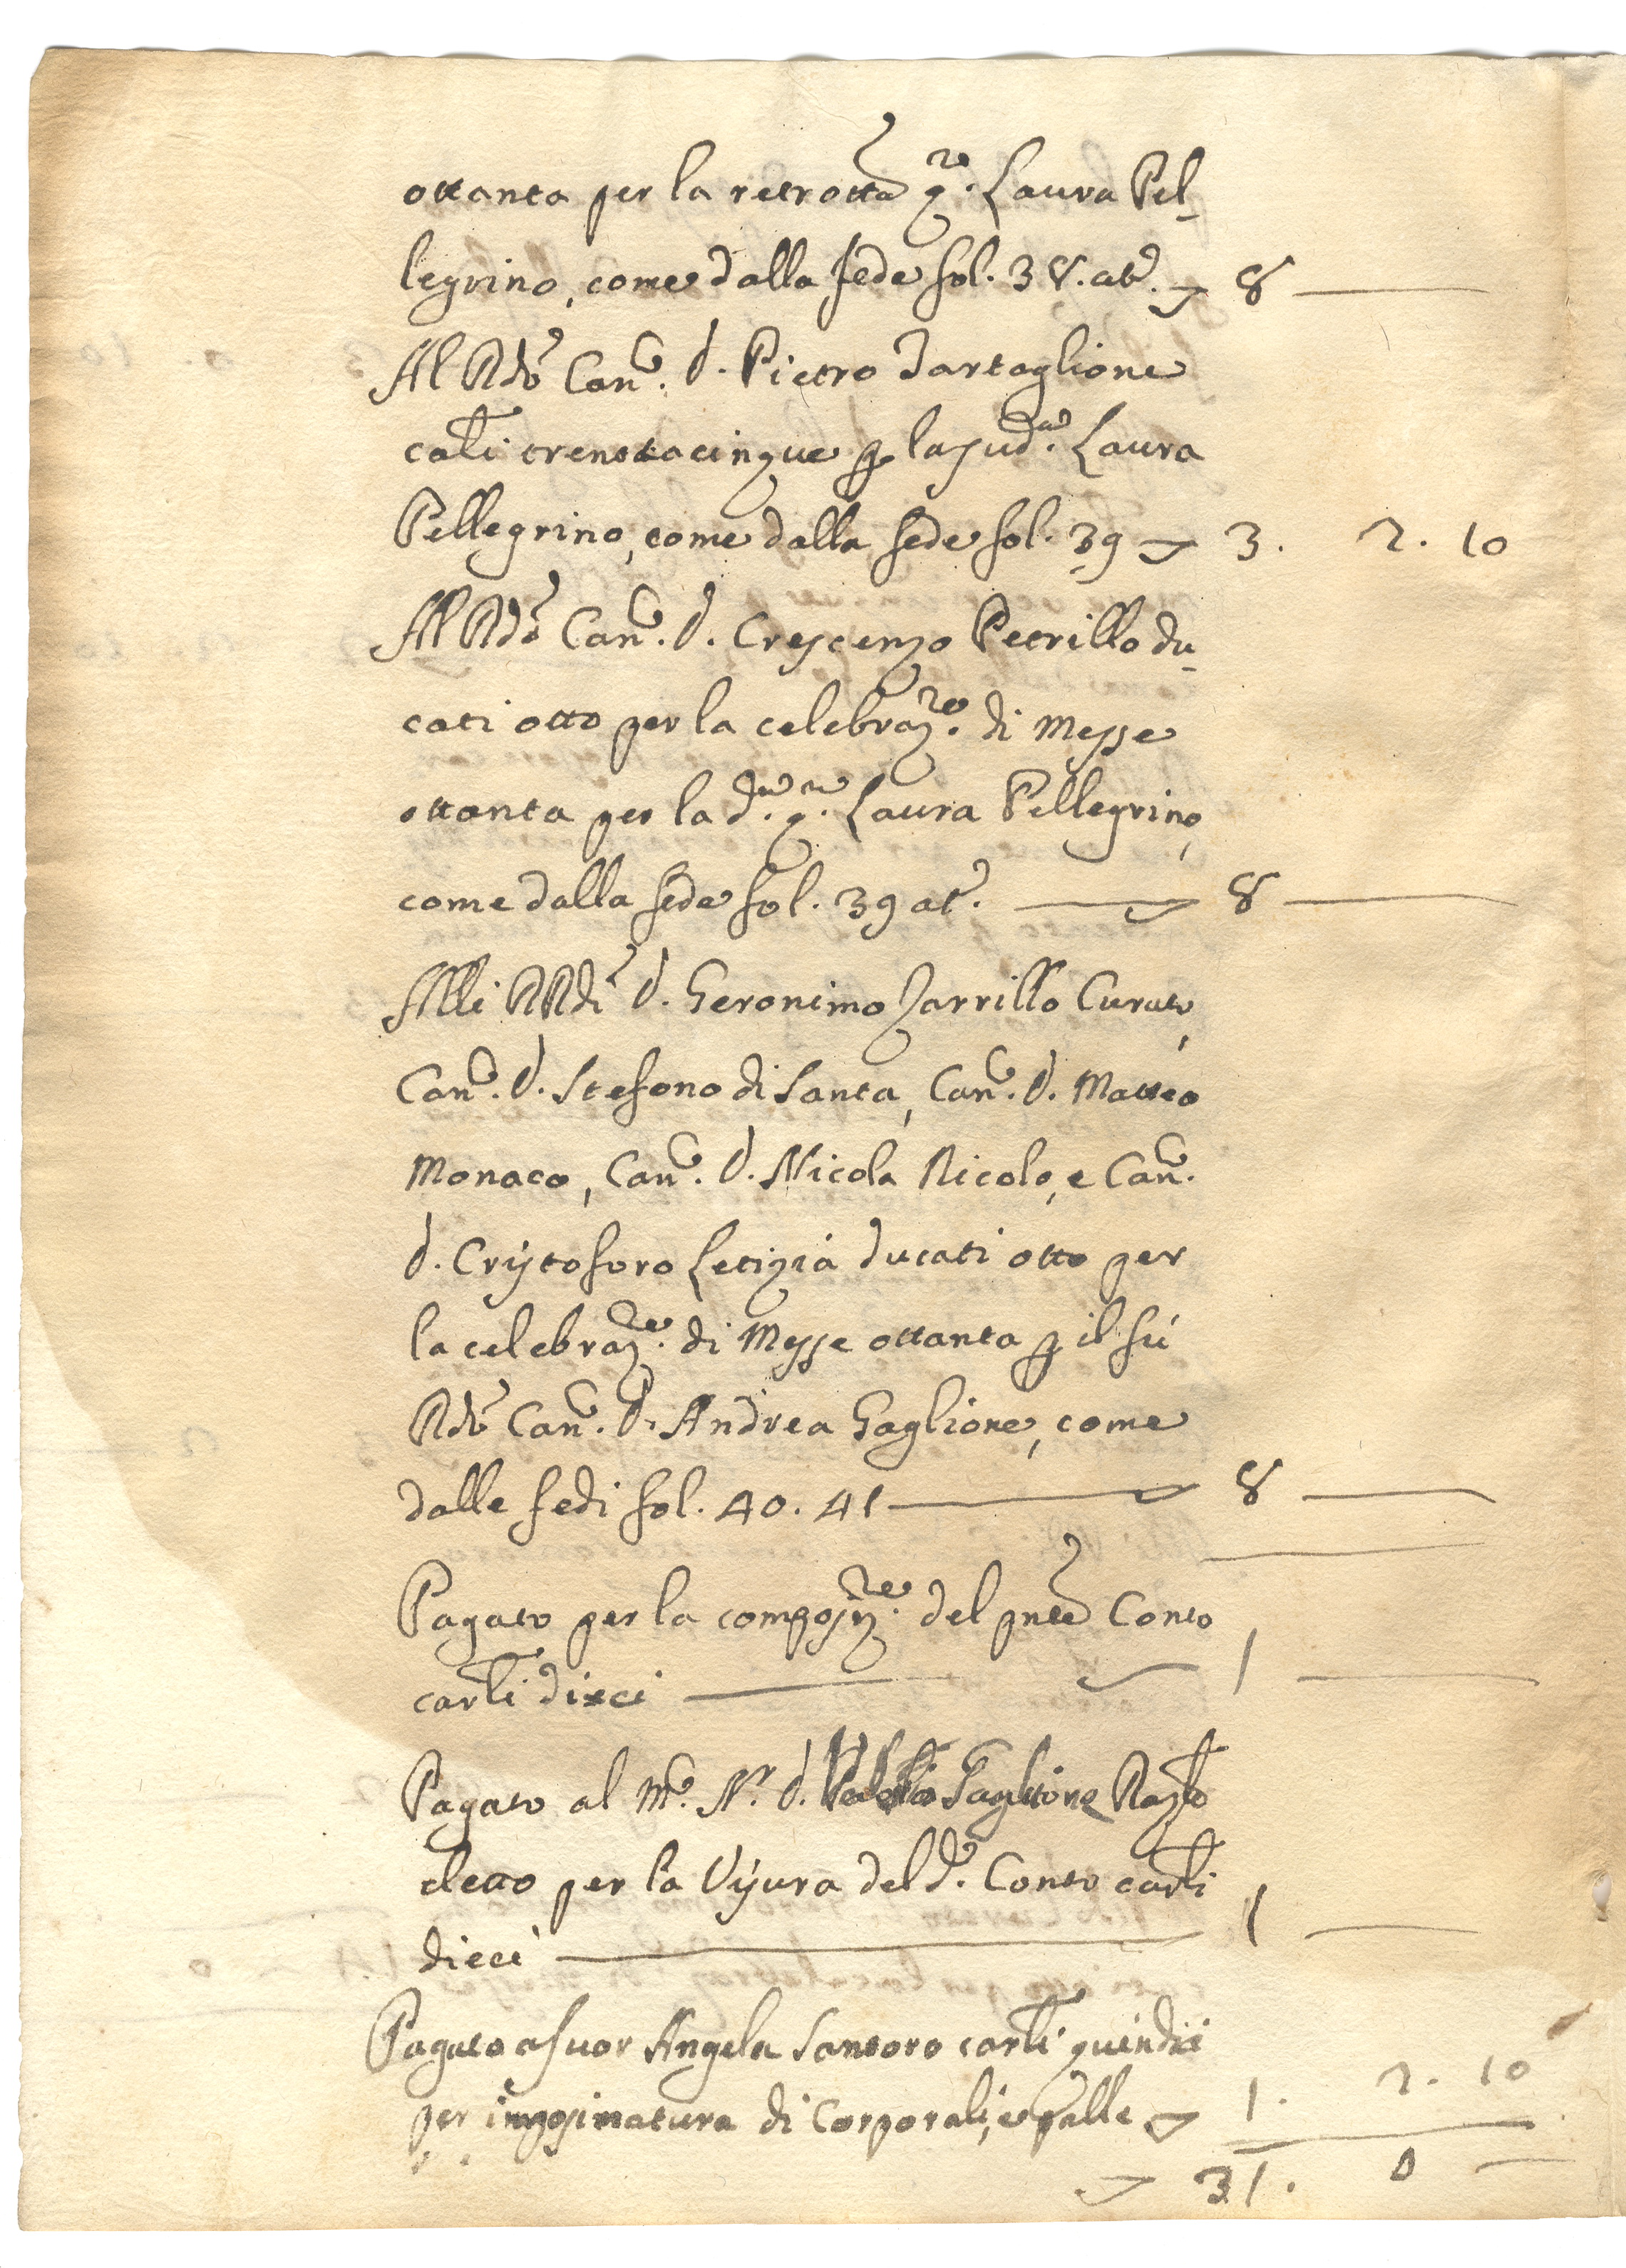 ottanta per la retrottā q.re Laura Pel-
legrino, come dalla fede fol. 38. at.o 8
Al Rdo Can.o D. Pietro Tartaglione
carli trentacinque per la sud.a Laura
Pellegrino, come dalla fede fol. 39 3. 2. 10
Al Rdo Can.o D. Crescenzo Petrillo du-
cati otto per la celebraz.ne di Messe
ottanta per la d.a q.m Laura Pellegrino,
come dalla fede fol. 39 at.o 8
Alli RRdi D. Geronimo Zarrillo Curato,
Can.o D. Stefano di Santa, Can.o D. Matteo
Monaco, Can.o D. Nicola Nicolò, e Can.o
D. Cristofaro Letizia ducati otto per
la celebraz.ne di Messe ottanta per il fù
Rdo Can.o D. Andrea Gaglione, come
dalle fedi fol. 40. 41 8
Pagato per la composiz.ne del pnte Conto
carli dieci 1
Pagato al M.co N.r D. Gaglione Raz.le
eletto per la Visura del d.o Conto carli
dieci 1
Pagato a Suor Angela Santoro carli quindici
per imposimatura di Corporali, e palle 1. 2. 10
31. 0